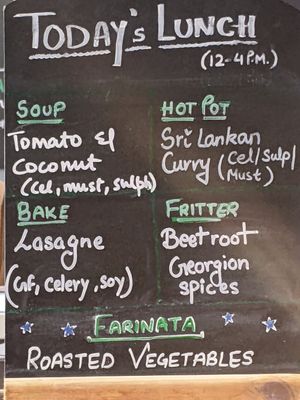 TODAY'S LUNCH
(12-4 P.M.)
SOUP
Tomato &
Coconut
(Cel, must, sulph)
HOT POT
Sri Lankan
Curry (Cel/Sulp/
Must)
BAKE
Lasagne
(GF, celery, soy)
FRITTER
Beetroot
Georgion
spices
FARINATA
ROASTED VEGETABLES